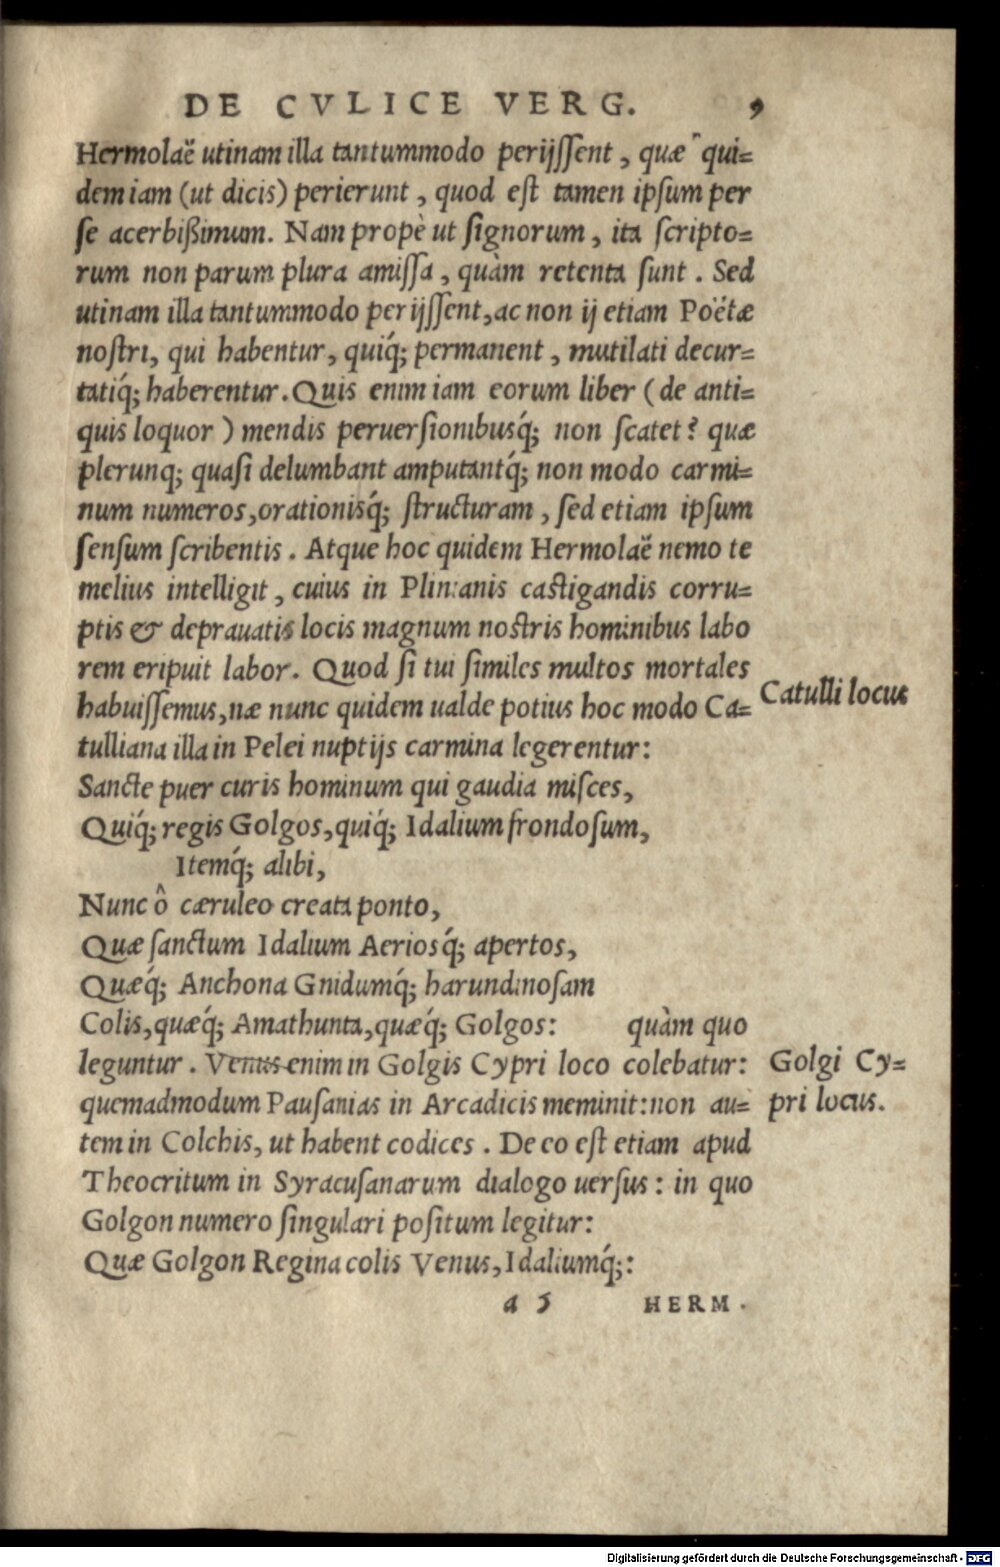 DE CVLICE VERG. 9
Hermolaë utinam illa tantummodo perijssent, quæ qui=
dem iam (ut dicis) perierunt, quod est tamen ipsum per
se acerbißimum. Nam propè ut signorum, ita scripto=
rum non parum plura amissa, quàm retenta sunt. Sed
utinam illa tantummodo perijssent, ac non ij etiam Poëtæ
nostri, qui habentur, quiq́; permanent, mutilati decur=
tatiq́; haberentur. Quis enim iam eorum liber (de anti=
quis loquor) mendis peruersionibusq́; non scatet? quæ
plerunq; quasi delumbant amputantq́; non modo carmi=
num numeros, orationisq́; structuram, sed etiam ipsum
sensum scribentis. Atque hoc quidem Hermolaë nemo te
melius intelligit, cuius in Plinianis castigandis corru=
ptis & deprauatis locis magnum nostris hominibus labo
rem eripuit labor. Quod si tui similes multos mortales
habuissemus, næ nunc quidem ualde potius hoc modo Ca= Catulli locus
tulliana illa in Pelei nuptijs carmina legerentur:
Sancte puer curis hominum qui gaudia misces,
Quiq́; regis Golgos, quiq́; Idalium frondosum,
Itemq́; alibi,
Nunc ô cæruleo creata ponto,
Quæ sanctum Idalium Aeriosq́; apertos,
Quæq́; Anchona Gnidumq́; harundinosam
Colis, quæq́; Amathunta, quæq́; Golgos: quàm quo
leguntur. Venus enim in Golgis Cypri loco colebatur: Golgi Cy=
quemadmodum Pausanias in Arcadicis meminit: non au= pri locus.
tem in Colchis, ut habent codices. De eo est etiam apud
Theocritum in Syracusanarum dialogo uersus: in quo
Golgon numero singulari positum legitur:
Quæ Golgon Regina colis Venus, Idaliumq́;:
a 5 HERM.
Digitalisierung gefördert durch die Deutsche Forschungsgemeinschaft - DFG